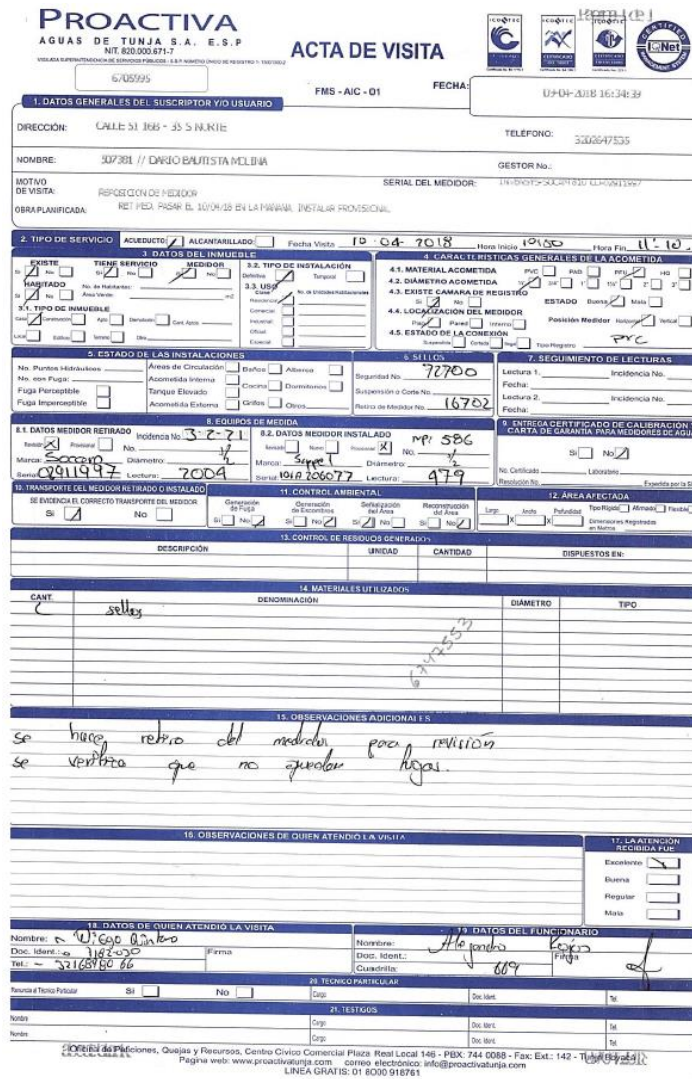 PROACTIVA
AGUAS DE TUNJA S.A. E.S.P
NIT. 820.000.671-7
ACTA DE VISITA
6705995
FMS - AIC - 01
FECHA:
09-04-2018 16:34:39
1. DATOS GENERALES DEL SUSCRIPTOR Y/O USUARIO
DIRECCIÓN: CALLE 51 16B - 35 S NORTE
TELÉFONO: 3202647535
NOMBRE: 507381 // DARIO BAUTISTA MOLINA
GESTOR No.:
MOTIVO DE VISITA: REPOSICION DE MEDIDOR
SERIAL DEL MEDIDOR:
OBRA PLANIFICADA: RET MED. PASAR EL 10/04/18 EN LA MAÑANA, INSTALAR PROVISIONAL
2. TIPO DE SERVICIO ACUEDUCTO: ALCANTARILLADO: Fecha Visita 10-04-2018 Hora Inicio 10:50 Hora Fin 11:10
3. DATOS DEL INMUEBLE
EXISTE TIENE SERVICIO MEDIDOR
Si No Si No Si No
HABITADO No. de Habitantes:
Si No Area Verde: m2
3.1. TIPO DE INMUEBLE
Casa Construcción Apto Demolición Cant. Aptos
Local Edificio Terreno Otro
3.2. TIPO DE INSTALACIÓN
Definitiva Temporal
3.3. USO
Clase No. de Unidades Habitacionales
Residencial
Comercial
Industrial
Oficial
Especial
4. CARACTERÍSTICAS GENERALES DE LA ACOMETIDA
4.1. MATERIAL ACOMETIDA PVC PAD PFU HG
4.2. DIÁMETRO ACOMETIDA 1/2" 3/4" 1" 1½" 2" 3"
4.3. EXISTE CAMARA DE REGISTRO
Si No ESTADO Buena Mala
4.4. LOCALIZACIÓN DEL MEDIDOR
Piso Pared Interno Posición Medidor Horizontal Vertical
4.5. ESTADO DE LA CONEXIÓN
Suspendida Cortada Ilegal Tipo Registro PVC
5. ESTADO DE LAS INSTALACIONES
No. Puntos Hidráulicos Áreas de Circulación Baños Alberca
No. con Fuga: Acometida Interna Cocina Dormitorios
Fuga Perceptible Tanque Elevado
Fuga Imperceptible Acometida Externa Grifos Otros
6. SELLOS
Seguridad No. 72700
Suspensión o Corte No.
Retiro de Medidor No. 16702
7. SEGUIMIENTO DE LECTURAS
Lectura 1. Incidencia No.
Fecha:
Lectura 2. Incidencia No.
Fecha:
8. EQUIPOS DE MEDIDA
8.1. DATOS MEDIDOR RETIRADO Incidencia No. 3-2-21
Revisión X Provisional No.
Marca: Socom Diámetro: 1/2
Serial: 02911997 Lectura: 2004
8.2. DATOS MEDIDOR INSTALADO MPI 586
Revisado Nuevo Provisional X No.
Marca: Diámetro: 1/2
Serial: 10IA206077 Lectura: 479
9. ENTREGA CERTIFICADO DE CALIBRACIÓN Y CARTA DE GARANTÍA PARA MEDIDORES DE AGUA
Si No
No. Certificado Laboratorio
Resolución No. Expedida por la
10. TRANSPORTE DEL MEDIDOR RETIRADO O INSTALADO
SE EVIDENCIA EL CORRECTO TRANSPORTE DEL MEDIDOR
Si No
11. CONTROL AMBIENTAL
Generación de Fuga Generación de Escombros Señalización del Área Reconstrucción del Área
Si No Si No Si No Si No
12. ÁREA AFECTADA
Largo Ancho Profundidad Tipo Rígido Afirmado Flexible
X X Dimensiones Registradas en Metros
13. CONTROL DE RESIDUOS GENERADOS
DESCRIPCIÓN UNIDAD CANTIDAD DISPUESTOS EN:
14. MATERIALES UTILIZADOS
CANT. DENOMINACIÓN DIÁMETRO TIPO
sellos
6747553
15. OBSERVACIONES ADICIONALES
se hace retiro del medidor para revisión
se verifica que no quedan fugas.
16. OBSERVACIONES DE QUIEN ATENDIÓ LA VISITA
17. LA ATENCIÓN RECIBIDA FUE
Excelente
Buena
Regular
Mala
18. DATOS DE QUIEN ATENDIÓ LA VISITA
Nombre: Diego Quintero
Doc. Ident.: Firma
Tel.:
19. DATOS DEL FUNCIONARIO
Nombre: Alejandro Rojas
Doc. Ident.: Firma
Cuadrilla: 609
20. TECNICO PARTICULAR
Renuncia al Técnico Particular Si No Cargo Doc. Ident. Tel.
21. TESTIGOS
Nombre Cargo Doc. Ident. Tel.
Nombre Cargo Doc. Ident. Tel.
Oficina de Peticiones, Quejas y Recursos, Centro Cívico Comercial Plaza Real Local 146 - PBX: 744 0088 - Fax: Ext.: 142 - Tunja Boyacá
Pagina web: www.proactivatunja.com correo electrónico: info@proactivatunja.com
LINEA GRATIS: 01 8000 918761